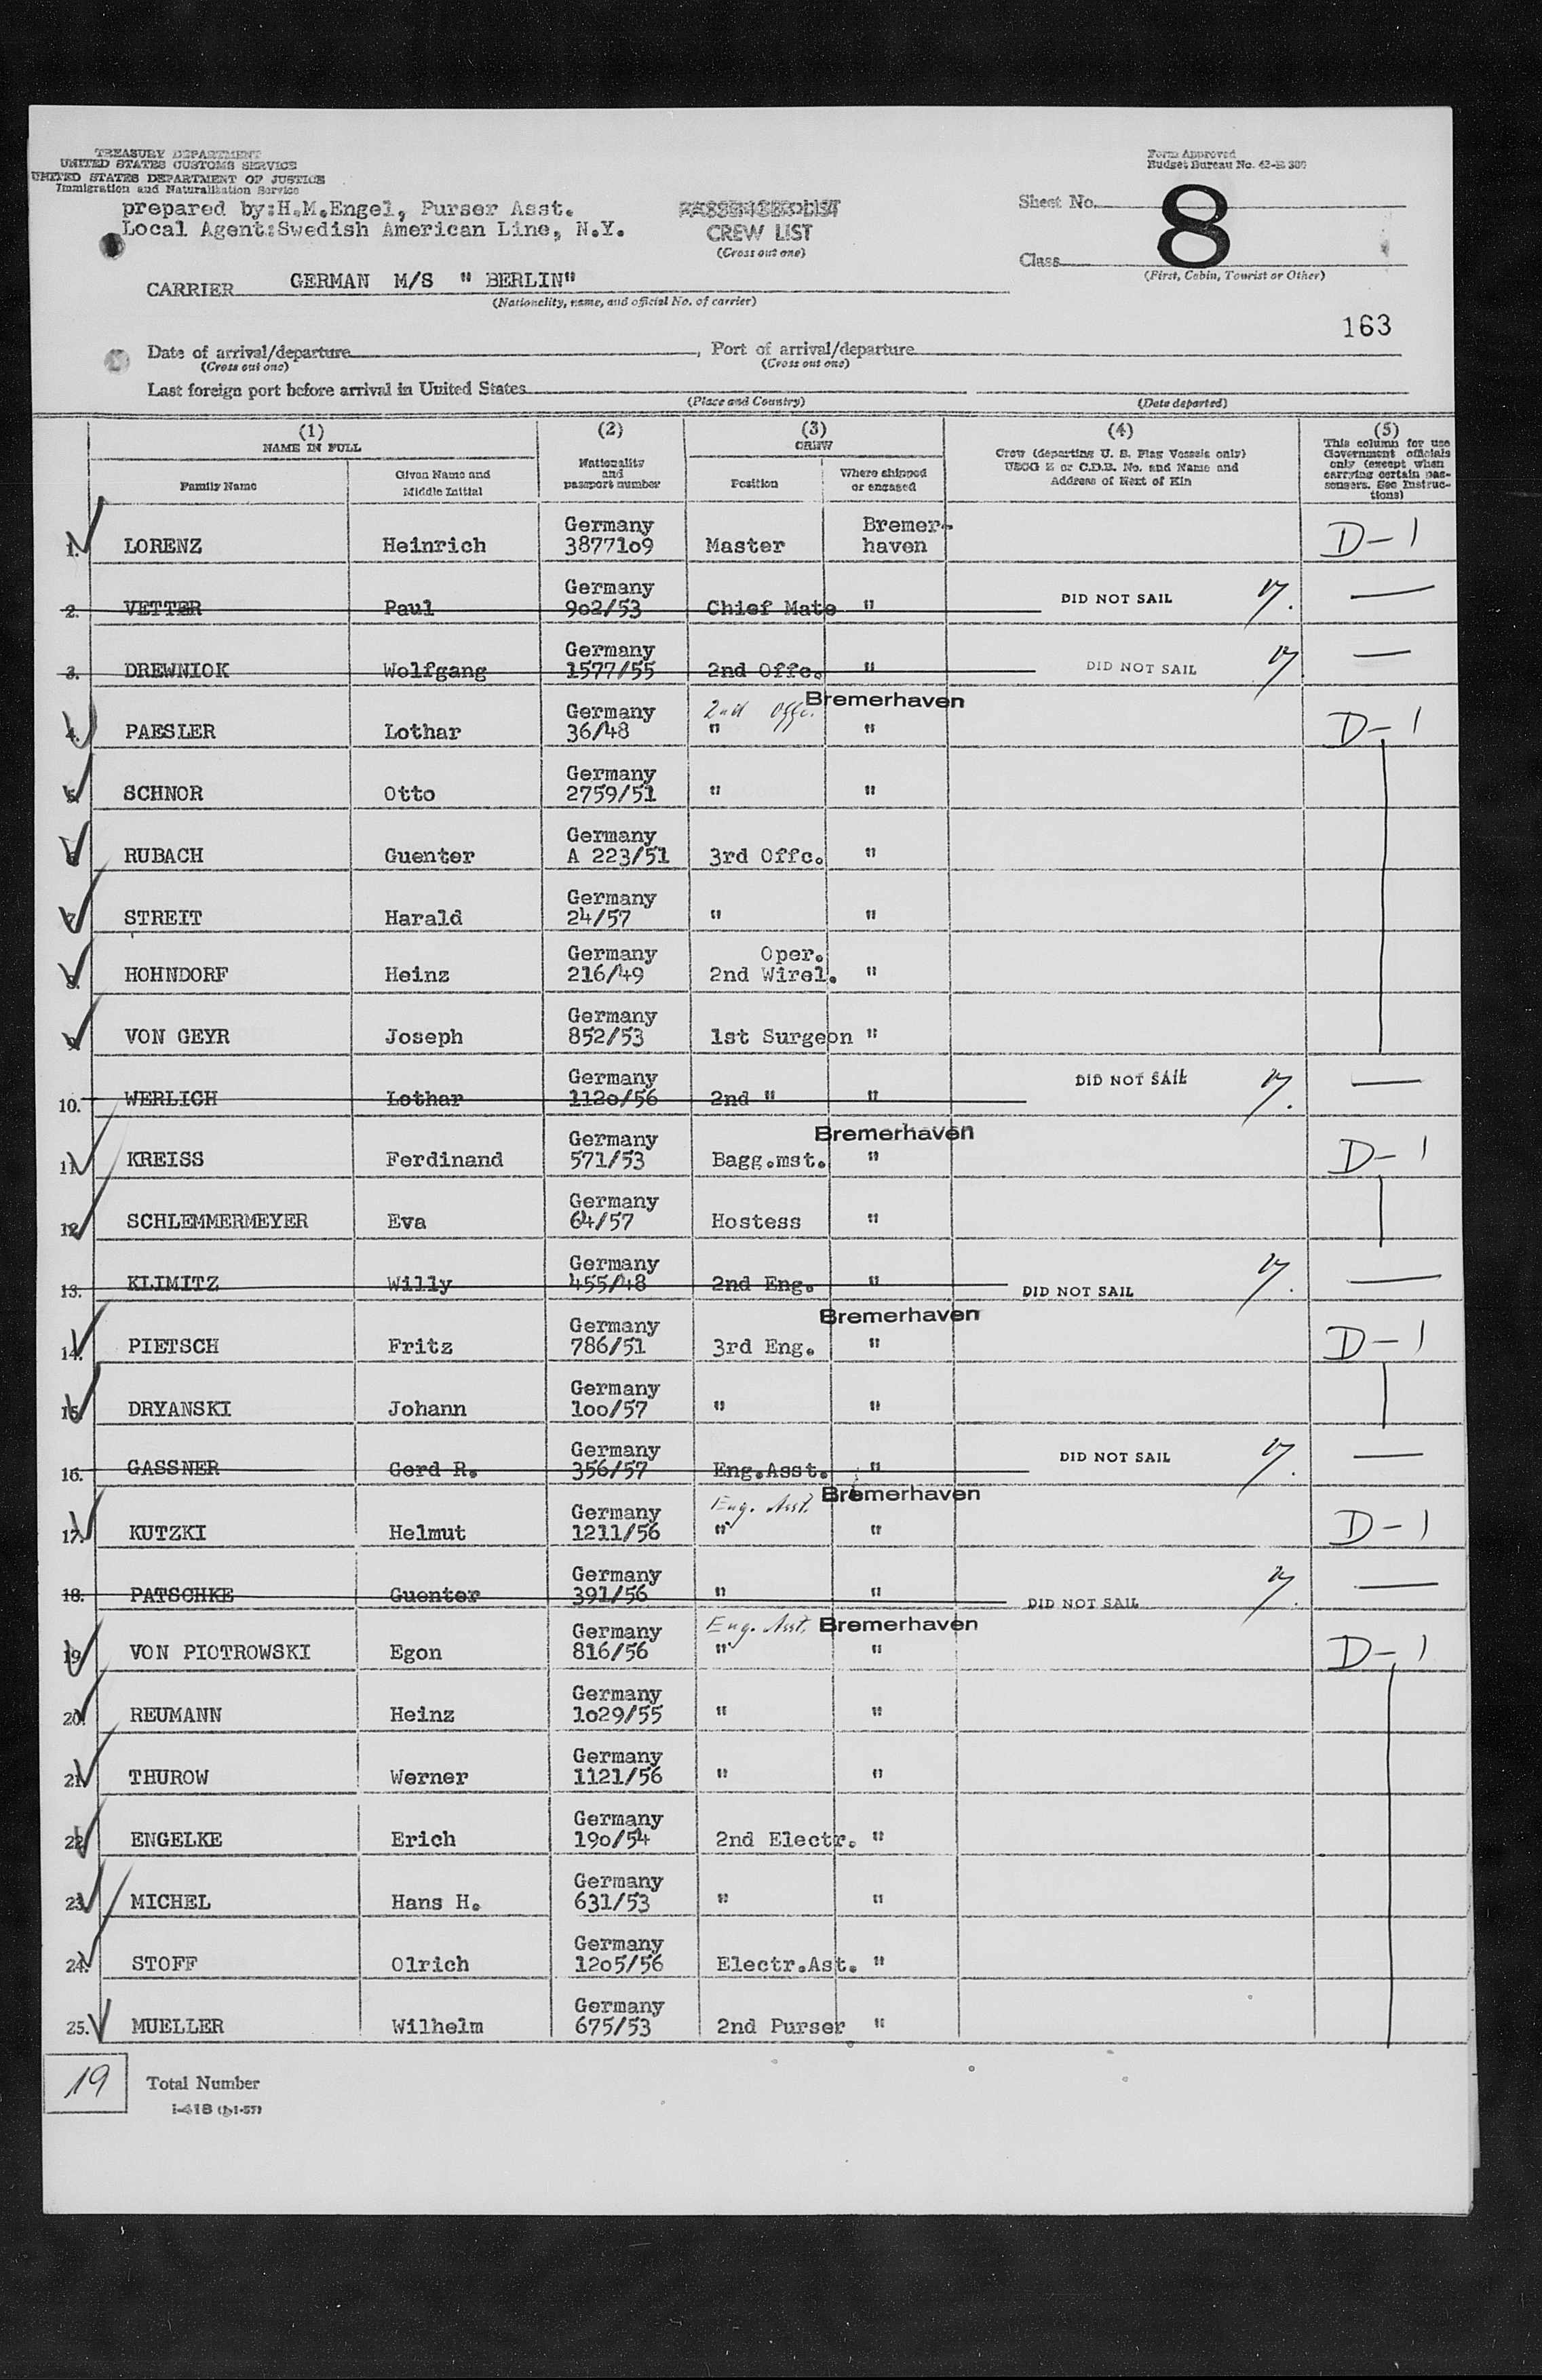 TREASURY DEPARTMENT
UNITED STATES CUSTOMS SERVICE
UNITED STATES DEPARTMENT OF JUSTICE
Immigration and Naturalization Service
Form Approved
Budget Bureau No. 43-
prepared by:H.M.Engel, Purser Asst.
Local Agent:Swedish American Line, N.Y.
PASSENGER LIST
CREW LIST
(Cross out one)
Sheet No. 8
Class
(First, Cabin, Tourist or Other)
CARRIER GERMAN M/S " BERLIN"
(Nationality, name, and official No. of carrier)
163
Date of arrival/departure , Port of arrival/departure
(Cross out one) (Cross out one)
Last foreign port before arrival in United States
(Place and Country) (Date departed)
(1) (2) (3) (4) (5)
NAME IN FULL
Family Name
Given Name and
Middle Initial
Nationality
and
passport number
CREW
Position
Where shipped
or engaged
Crew (departing U. S. Flag Vessels only)
USCG Z or C.D.B. No. and Name and
Address of Next of Kin
This column for use
Government officials
only (except when
carrying certain pas-
sengers. See Instruc-
tions)
Germany Bremer-
1. LORENZ Heinrich 3877109 Master haven D-1
Germany
2. VETTER Paul 902/53 Chief Mate " DID NOT SAIL —
Germany
3. DREWNIOK Wolfgang 1577/55 2nd Offc. " DID NOT SAIL —
Germany 2nd Offc. Bremerhaven
4. PAESLER Lothar 36/48 " " D-1
Germany
5. SCHNOR Otto 2759/51 " "
Germany
6 RUBACH Guenter A 223/51 3rd Offc. "
Germany
7. STREIT Harald 24/57 " "
Germany Oper.
8. HOHNDORF Heinz 216/49 2nd Wirel. "
Germany
9. VON GEYR Joseph 852/53 1st Surgeon "
Germany
10. WERLICH Lothar 1120/56 2nd " " DID NOT SAIL —
Germany Bremerhaven
11. KREISS Ferdinand 571/53 Bagg.mst. " D-1
Germany
12. SCHLEMMERMEYER Eva 64/57 Hostess "
Germany
13. KLIMITZ Willy 455/48 2nd Eng. " DID NOT SAIL —
Germany Bremerhaven
14. PIETSCH Fritz 786/51 3rd Eng. " D-1
Germany
15. DRYANSKI Johann 100/57 " "
Germany
16. GASSNER Gerd R. 356/57 Eng.Asst. " DID NOT SAIL —
Germany Eng. Asst. Bremerhaven
17. KUTZKI Helmut 1211/56 " " D-1
Germany
18. PATSCHKE Guenter 391/56 " " DID NOT SAIL —
Germany Eng. Asst. Bremerhaven
19. VON PIOTROWSKI Egon 816/56 " " D-1
Germany
20. REUMANN Heinz 1029/55 " "
Germany
21. THUROW Werner 1121/56 " "
Germany
22. ENGELKE Erich 190/54 2nd Electr. "
Germany
23. MICHEL Hans H. 631/53 " "
Germany
24. STOFF Olrich 1205/56 Electr.Ast. "
Germany
25. MUELLER Wilhelm 675/53 2nd Purser "
19 Total Number
I-418